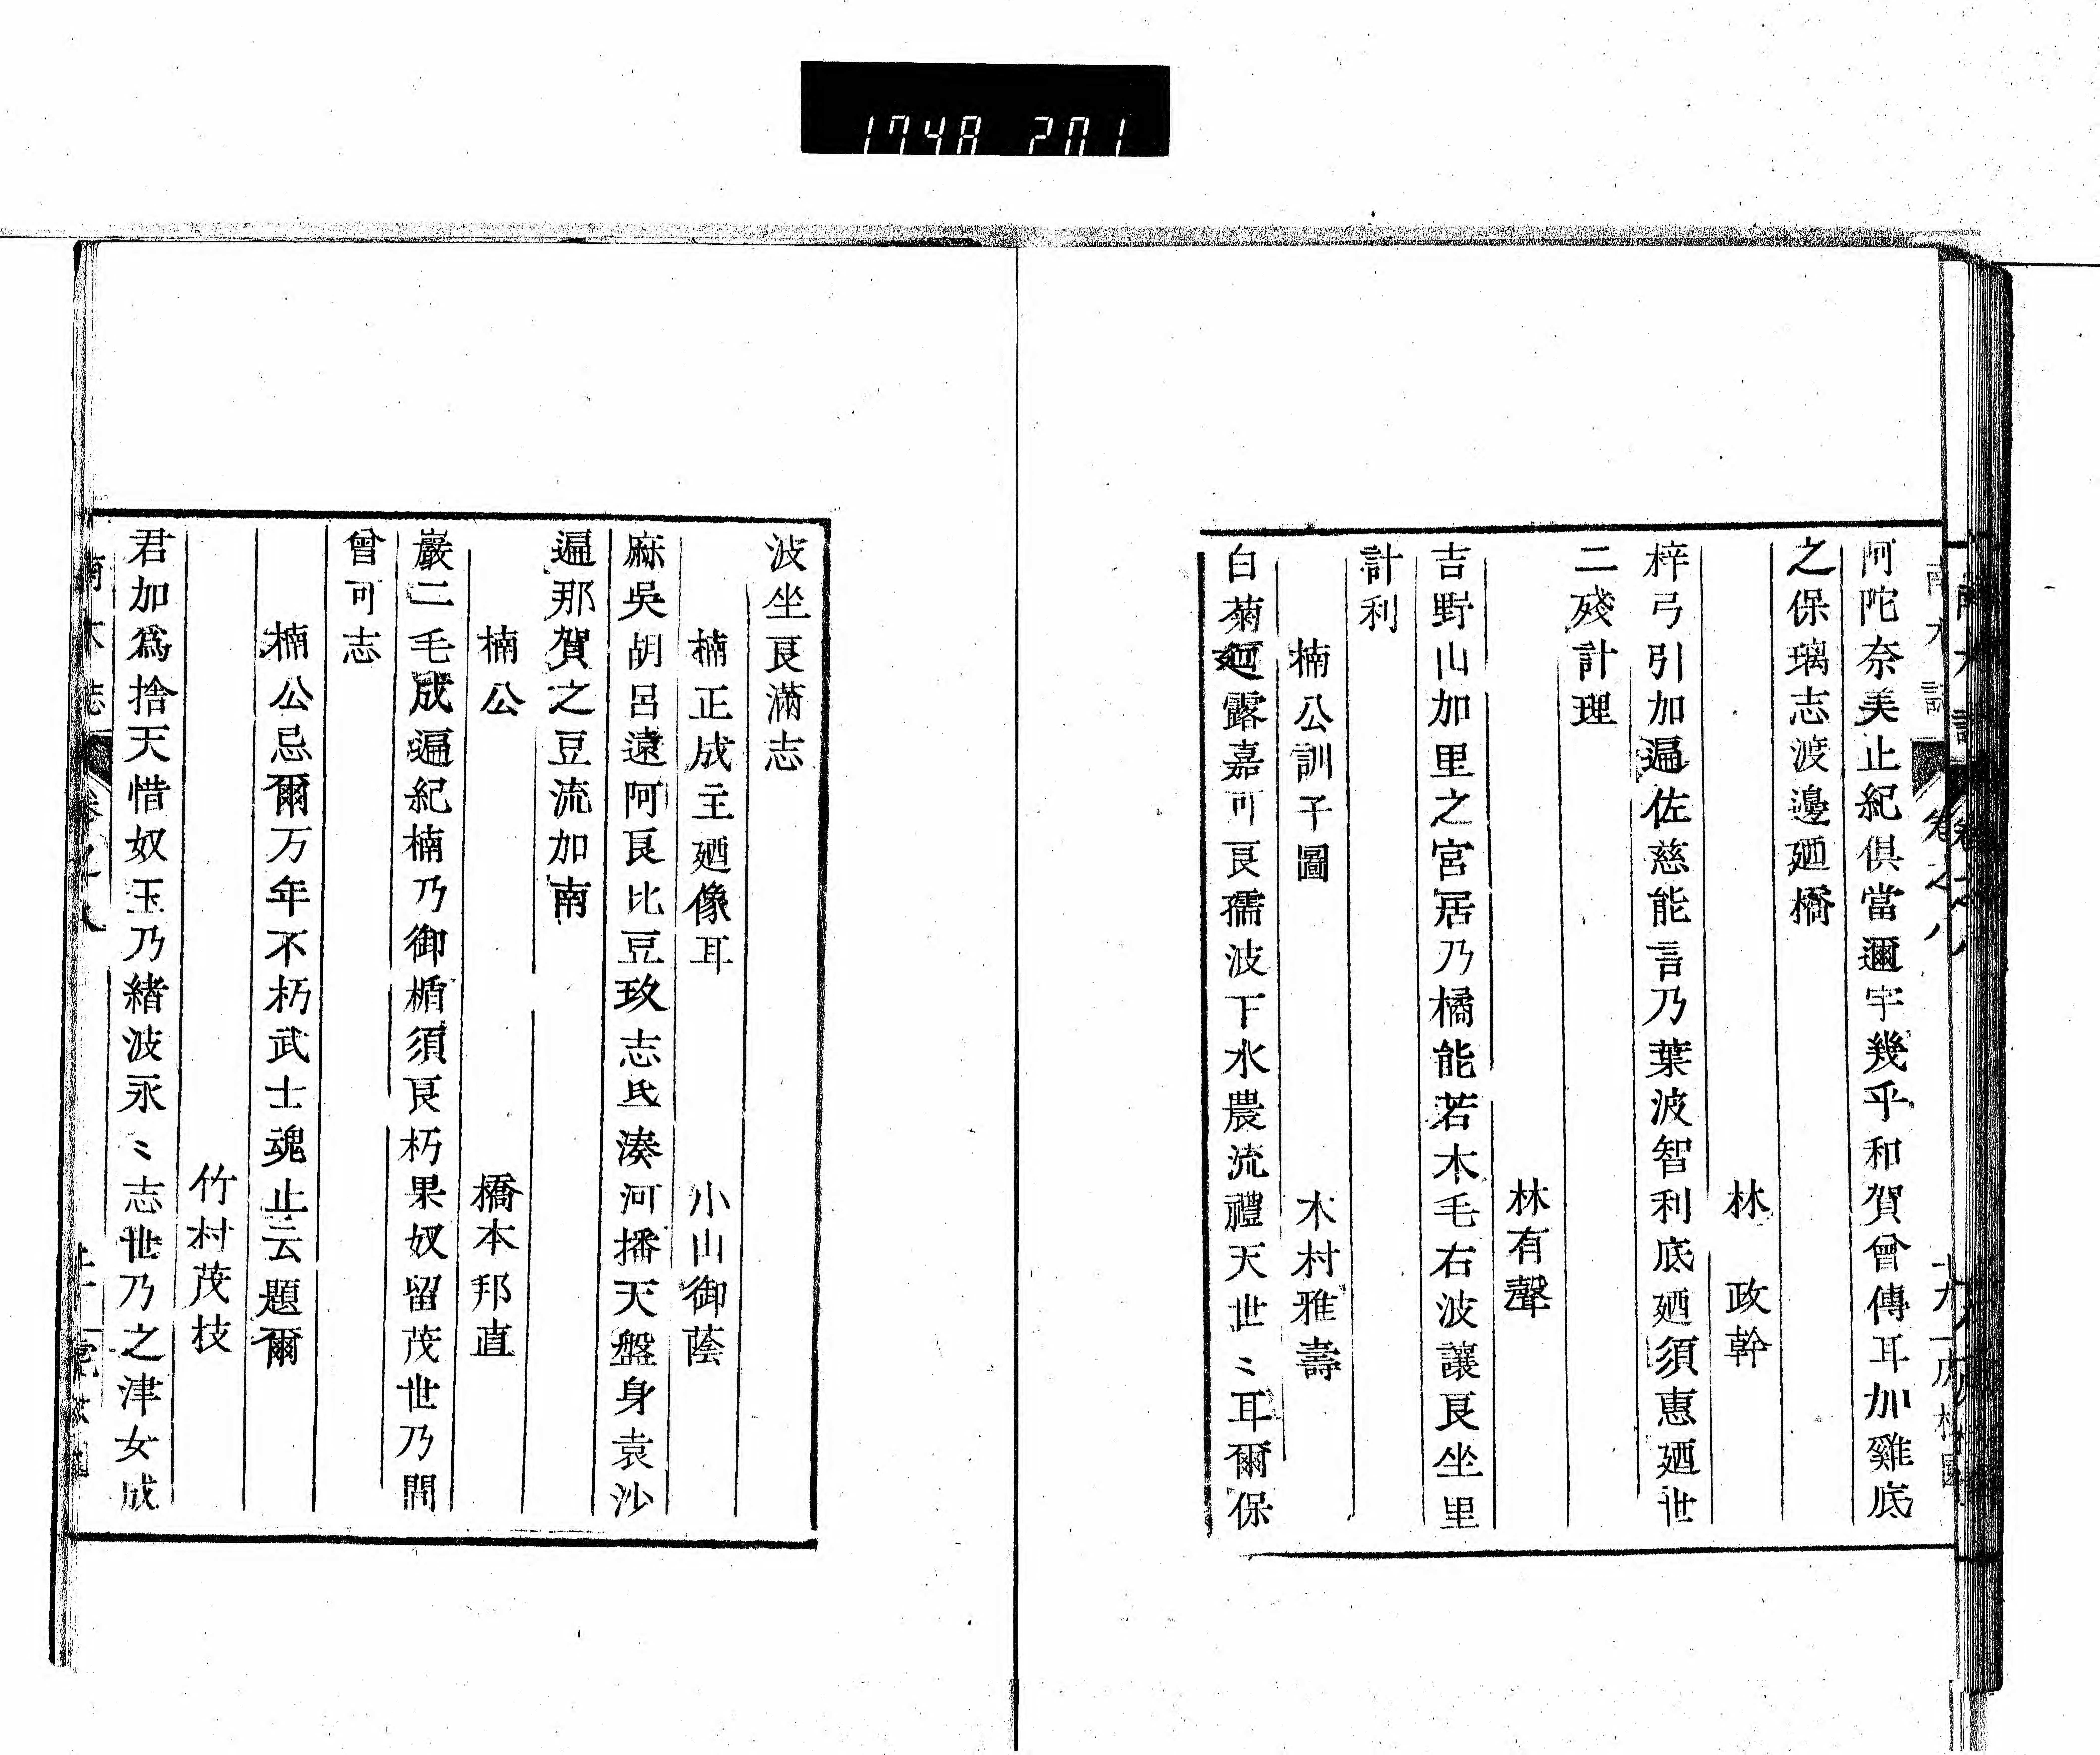 1748 201
阿陀奈美止紀倶當邇宇幾乎和賀曾傳耳加雞底
之保璃志渡邊廼橋
林 政幹
梓弓引加遍佐慈能言乃葉波智利底廼須惠廼世
二殘計理
林有聲
吉野山加里之宮居乃橘能若木毛右波讓良坐里
計利
楠公訓子圖 木村雅壽
白菊廼露嘉可良孺波下水農流禮天世〻耳爾保
波坐良滿志
楠正成主廼像耳 小山御蔭
麻吳胡呂遠阿良比豆玖志氐湊河播天盤身袁沙
遍那賀之豆流加南
楠公 橋本邦直
巖二毛成遍紀楠乃御楯須良朽果奴留茂世乃間
曾可志
楠公忌爾万年不朽武士魂止云題爾
竹村茂枝
君加爲捨天惜奴玉乃緒波永〻志世乃之津女成